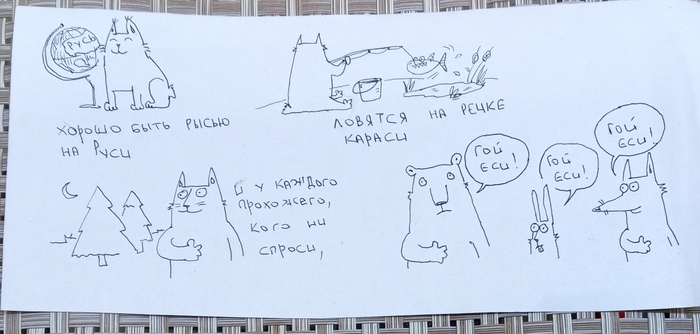 РУСЬ
ХОРОШО БЫТЬ РЫСЬЮ
НА РУСИ
ЛОВЯТСЯ НА РЕЧКЕ
КАРАСИ
И У КАЖДОГО
ПРОХОЖЕГО,
КОГО НИ
СПРОСИ,
ГОЙ
ЕСИ!
ГОЙ
ЕСИ!
ГОЙ
ЕСИ!